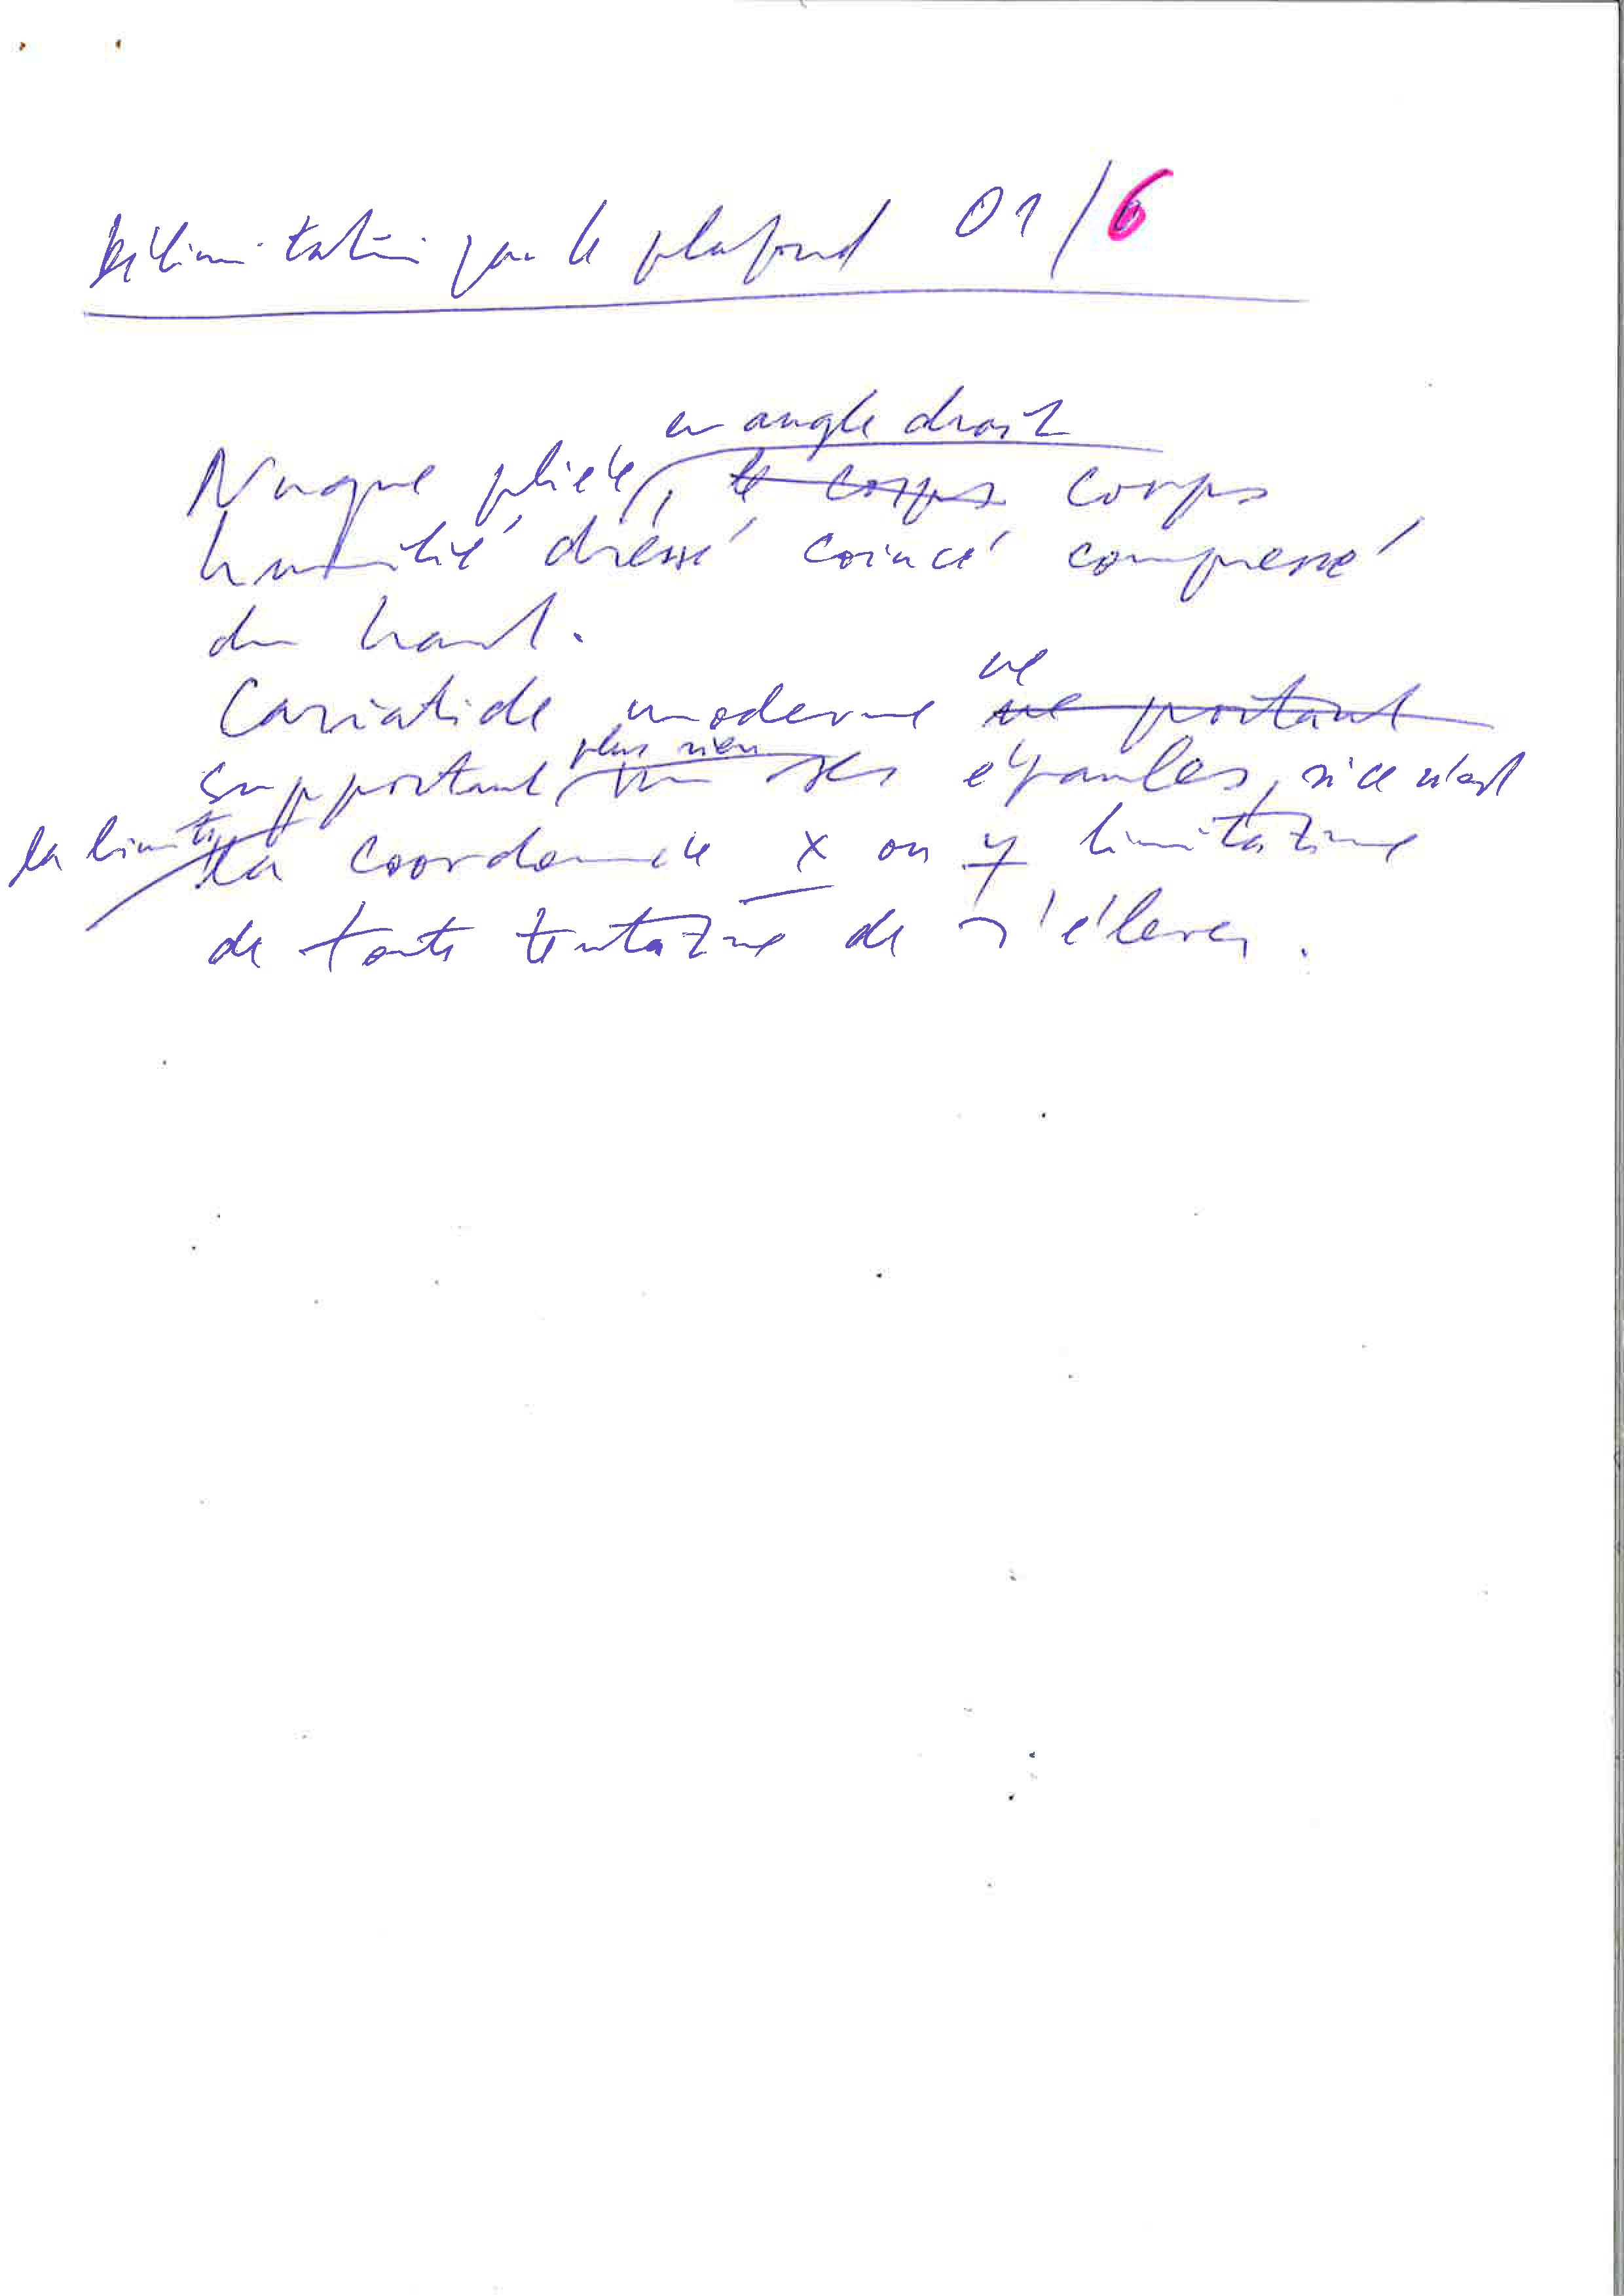 Délimitation par le plafond 01/6
en angle droit
Nuque pliée, le corps corps
humilié dressé coincé compressé
du haut.
Cariatide moderne ne ne portant
supportant plus rien sur ses épaules, si ce n'est
la limite la coordonnée x ou y limitative
de toute tentative de s'élever.